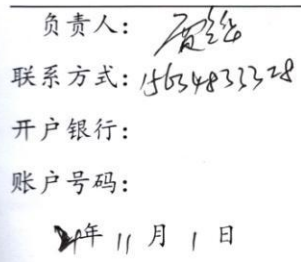 负责人：贾
联系方式：15634833328
开户银行：
账户号码：
年 11 月 1 日